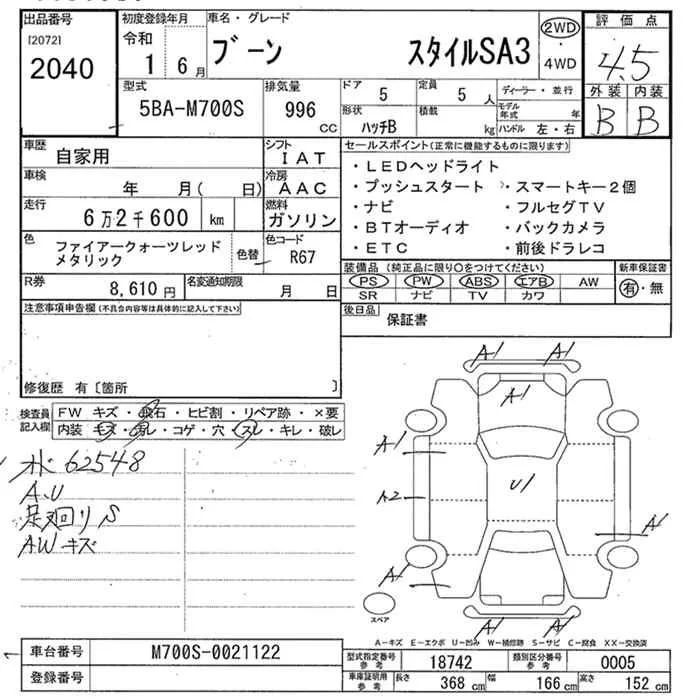 出品番号
[2072]
2040
初度登録年月
令和
1 6月
車名・グレード
ブーン スタイルSA3
2WD
・
4WD
評価点
4.5
外装 内装
B B
型式
5BA-M700S
排気量
996 cc
ドア
5
定員
5 人
ディーラー・並行
形状
ハッチB
積載
kg
モデル年式 年
ハンドル 左・右
車歴
自家用
シフト
IAT
車検
年 月( 日)
冷房
AAC
走行
6万2千600 km
燃料
ガソリン
色
ファイアークォーツレッド
メタリック
色替
色コード
R67
R券
8,610円
名変通知期限
月 日
セールスポイント(正常に機能するものに限ります)
・LEDヘッドライト
・プッシュスタート ・スマートキー2個
・ナビ ・フルセグTV
・BTオーディオ ・バックカメラ
・ETC ・前後ドラレコ
装備品(純正品に限り○をつけてください)
PS PW ABS エアB AW
SR ナビ TV カワ
新車保証書
有・無
後日品
保証書
注意事項申告欄(不具合内容等は具体的に記入して下さい)
修復歴 有〔箇所 〕
検査員
記入欄
FW キズ・飛石・ヒビ割・リペア跡・×要
内装 キズ・汚レ・コゲ・穴・スレ・キレ・破レ
オド62548
A.U
足廻りS
AWキズ
A1 A1
A1
A1
U1
A2
A1
A1
スペア
A-キズ E-エクボ U-凹み W-補修跡 S-サビ C-腐食 XX-交換済
車台番号
M700S-0021122
登録番号
型式指定番号
参考
18742
類別区分番号
参考
0005
車庫証明用
参考
長さ
368 cm
幅
166 cm
高さ
152 cm